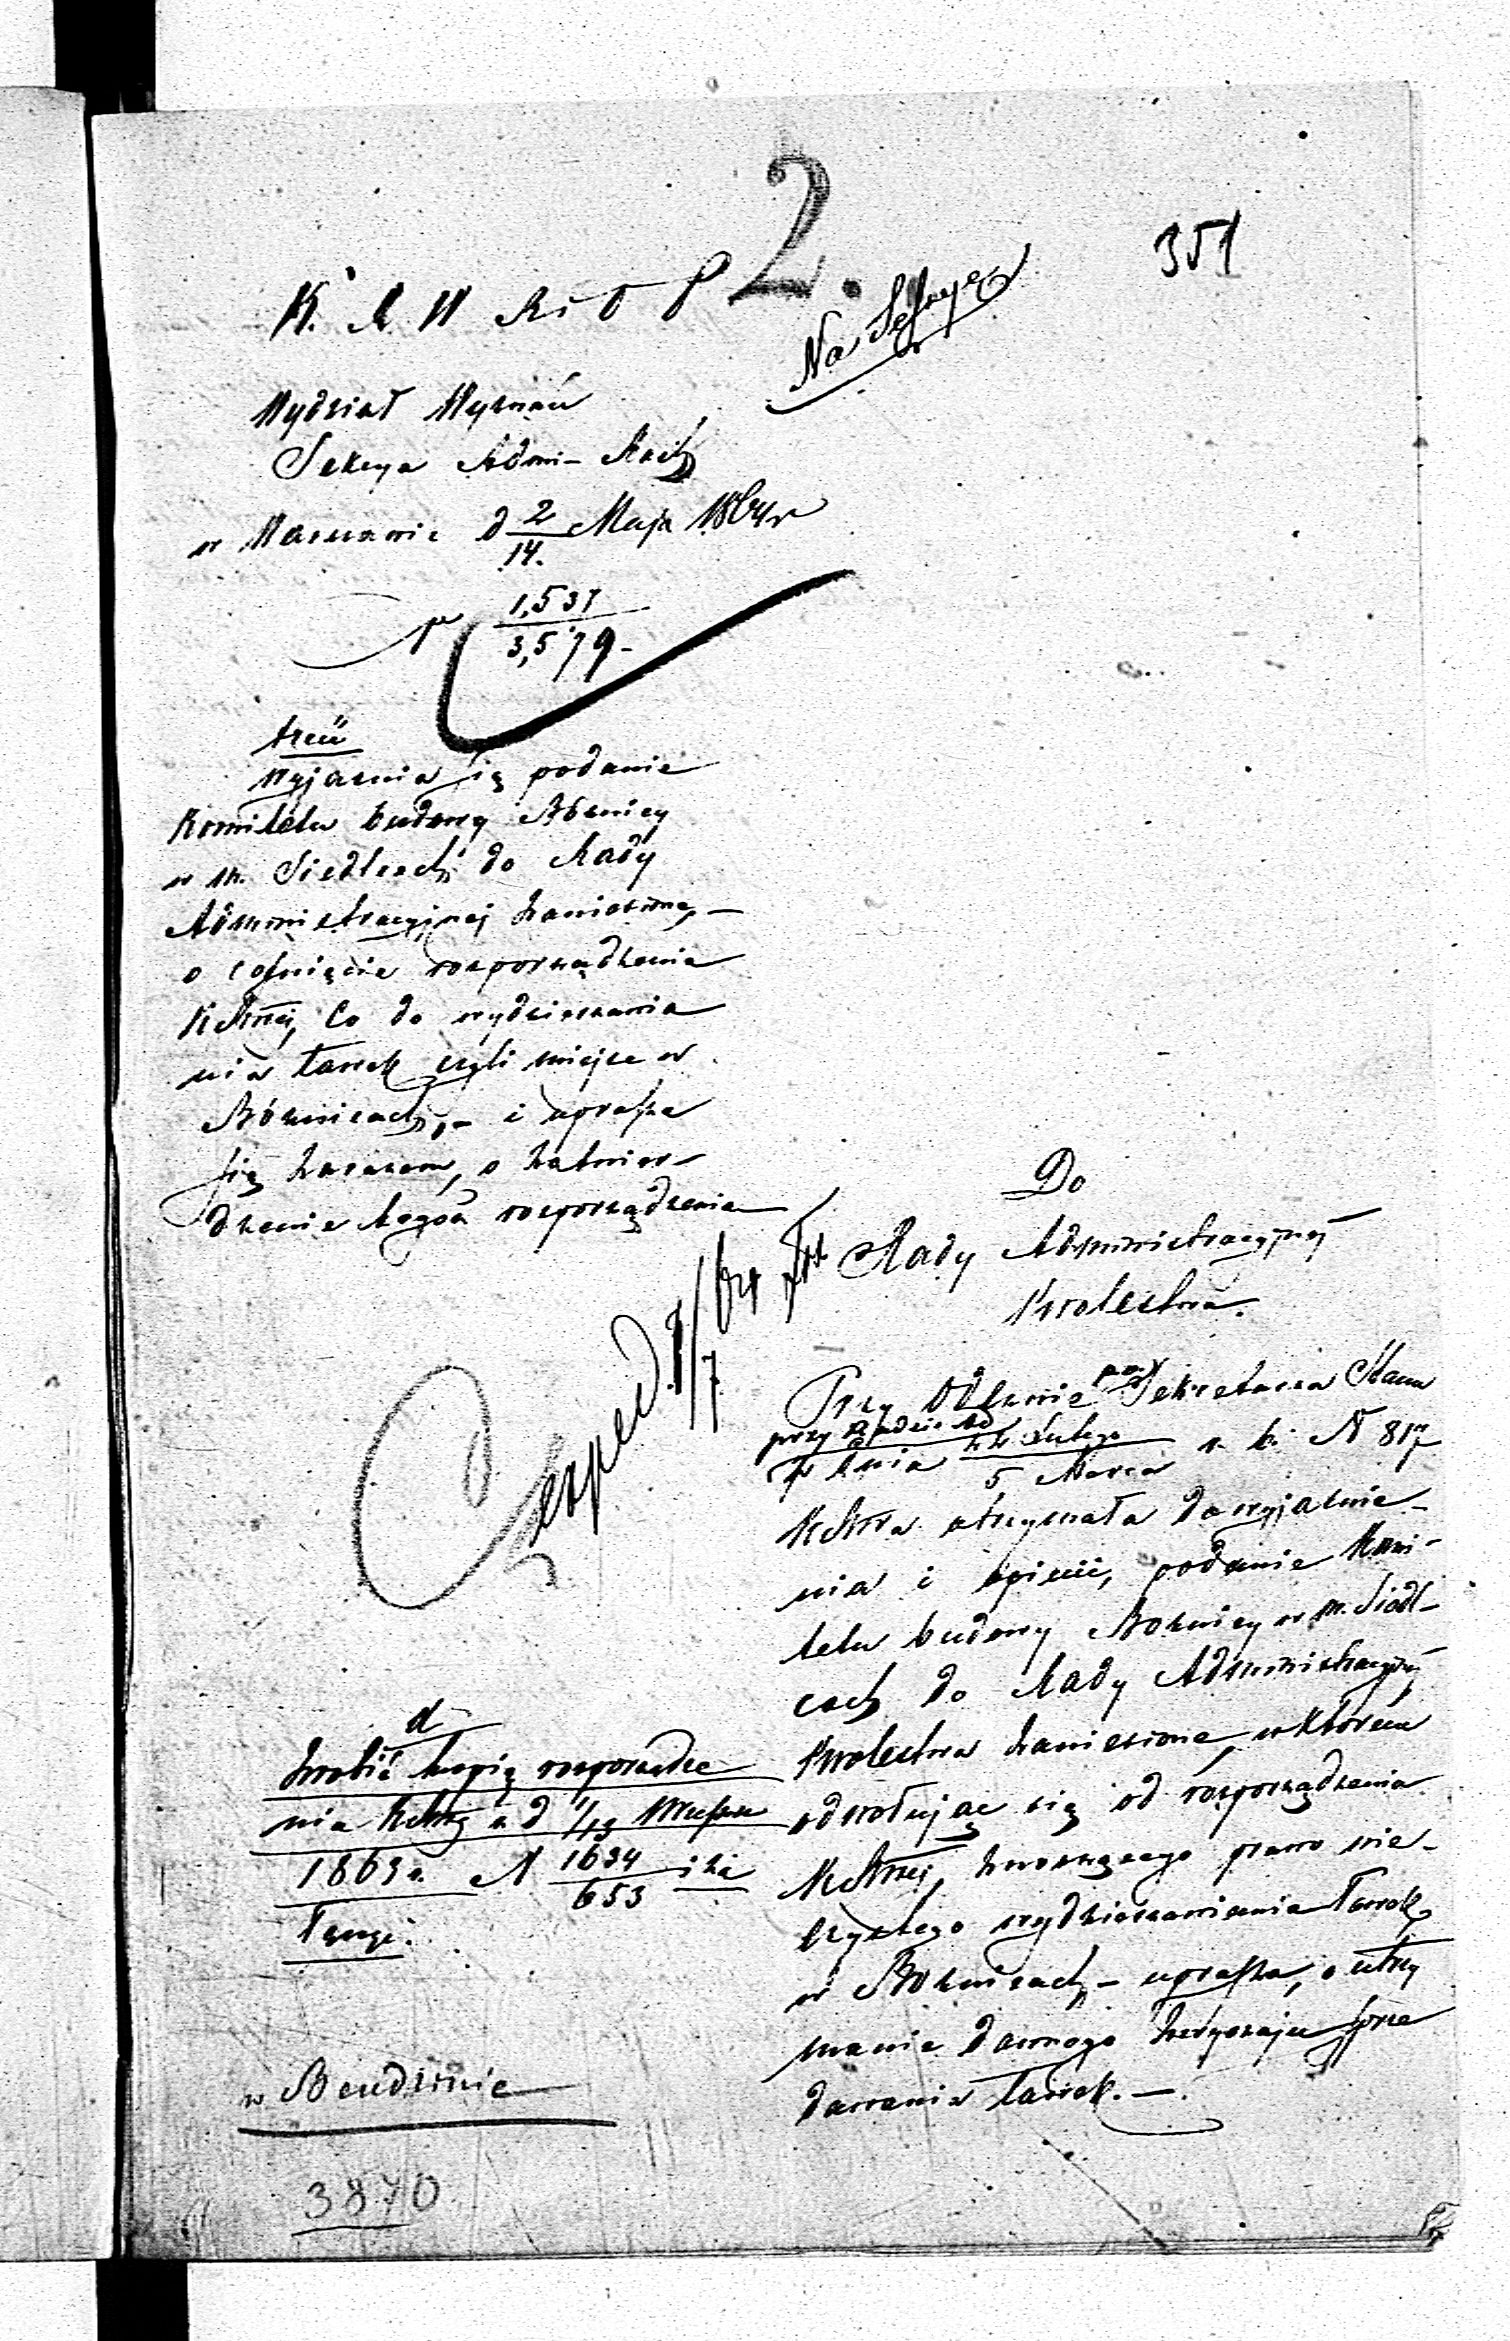 2.
351
K. R. W. R. i O. P.
Na Sessyę
Wydział Wyznań
Sekcya Admi- Rach
w Warszawie d 2/14. Maja 1864 r
N 1,537/3,579-
treść
Wyjaśnia się podanie
Komitetu budowy Bóżnicy
w m. Siedlcach do Rady
Administracyjnej zaniesione,-
o cofnięcie rozporządzenia
K. Rząd, co do wydzierżawia
nia ławek czyli miejsc w
Bóżnicach,- i uprasza
się zarazem, o zatwier-
dzenie tegoż rozporządzenia
Do
Rady Administracyjnej
Królestwa.
exped. 7/7 64
Przy Odezwie Sekretarza Stanu
przy Radzie Ad
z dnia 22 Lutego/5 Marca r. b. N 817
K. Rząd otrzymała do wyjaśnie-
nia i opinii, podanie Komi-
tetu budowy Bożnicy w m. Siedl-
cach do Rady Administracyjnej
Królestwa zaniesione, w którem
odwołując się od rozporządzenia
K. Rząd, znoszącego prawo wie-
czystego wydzierżawiania ławek
w Bożnicach,- uprasza, o utrzy
manie dawnego zwyczaju sprze
dawania ławek.-
d
Zrobić kopię rozporządze
nia K. Rząd z d 1/13 Wrześn
1863 r. N 1634/653 i za
łączyć.
w Bendzinie
3870